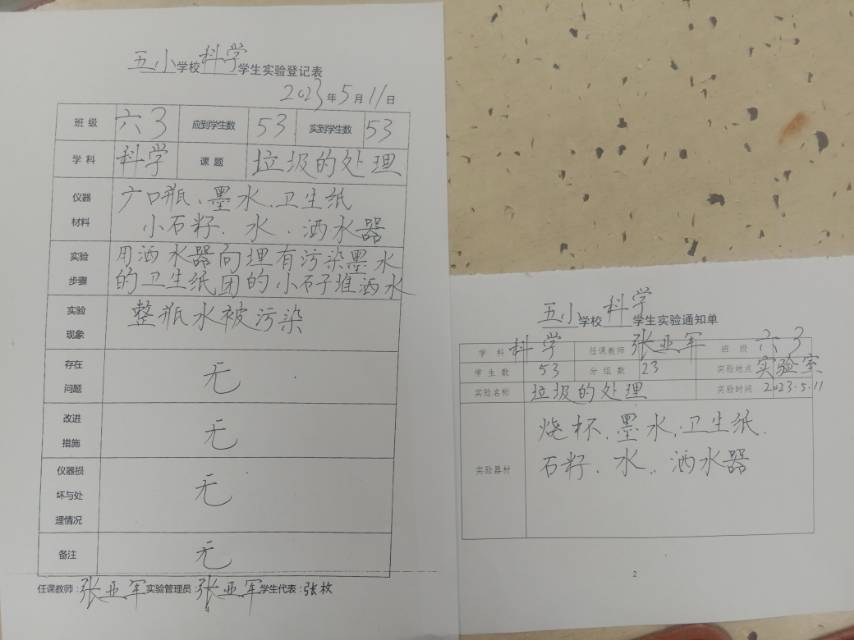 五小学校科学学生实验登记表
2023年5月11日
班级 六3 应到学生数 53 实到学生数 53
学科 科学 课题 垃圾的处理
仪器材料 广口瓶、墨水、卫生纸
小石籽、水、洒水器
实验步骤 用洒水器向埋有污染墨水
的卫生纸团的小石子堆洒水
实验现象 整瓶水被污染
存在问题 无
改进措施 无
仪器损坏与处理情况 无
备注 无
任课教师:张亚军 实验管理员:张亚军 学生代表:张枚
五小学校科学学生实验通知单
学科 科学 任课教师 张亚军 班级 六3
学生数 53 分组数 23 实验地点 实验室
实验名称 垃圾的处理 实验时间 2023.5.11
实验器材 烧杯、墨水、卫生纸、
石籽、水、洒水器
2